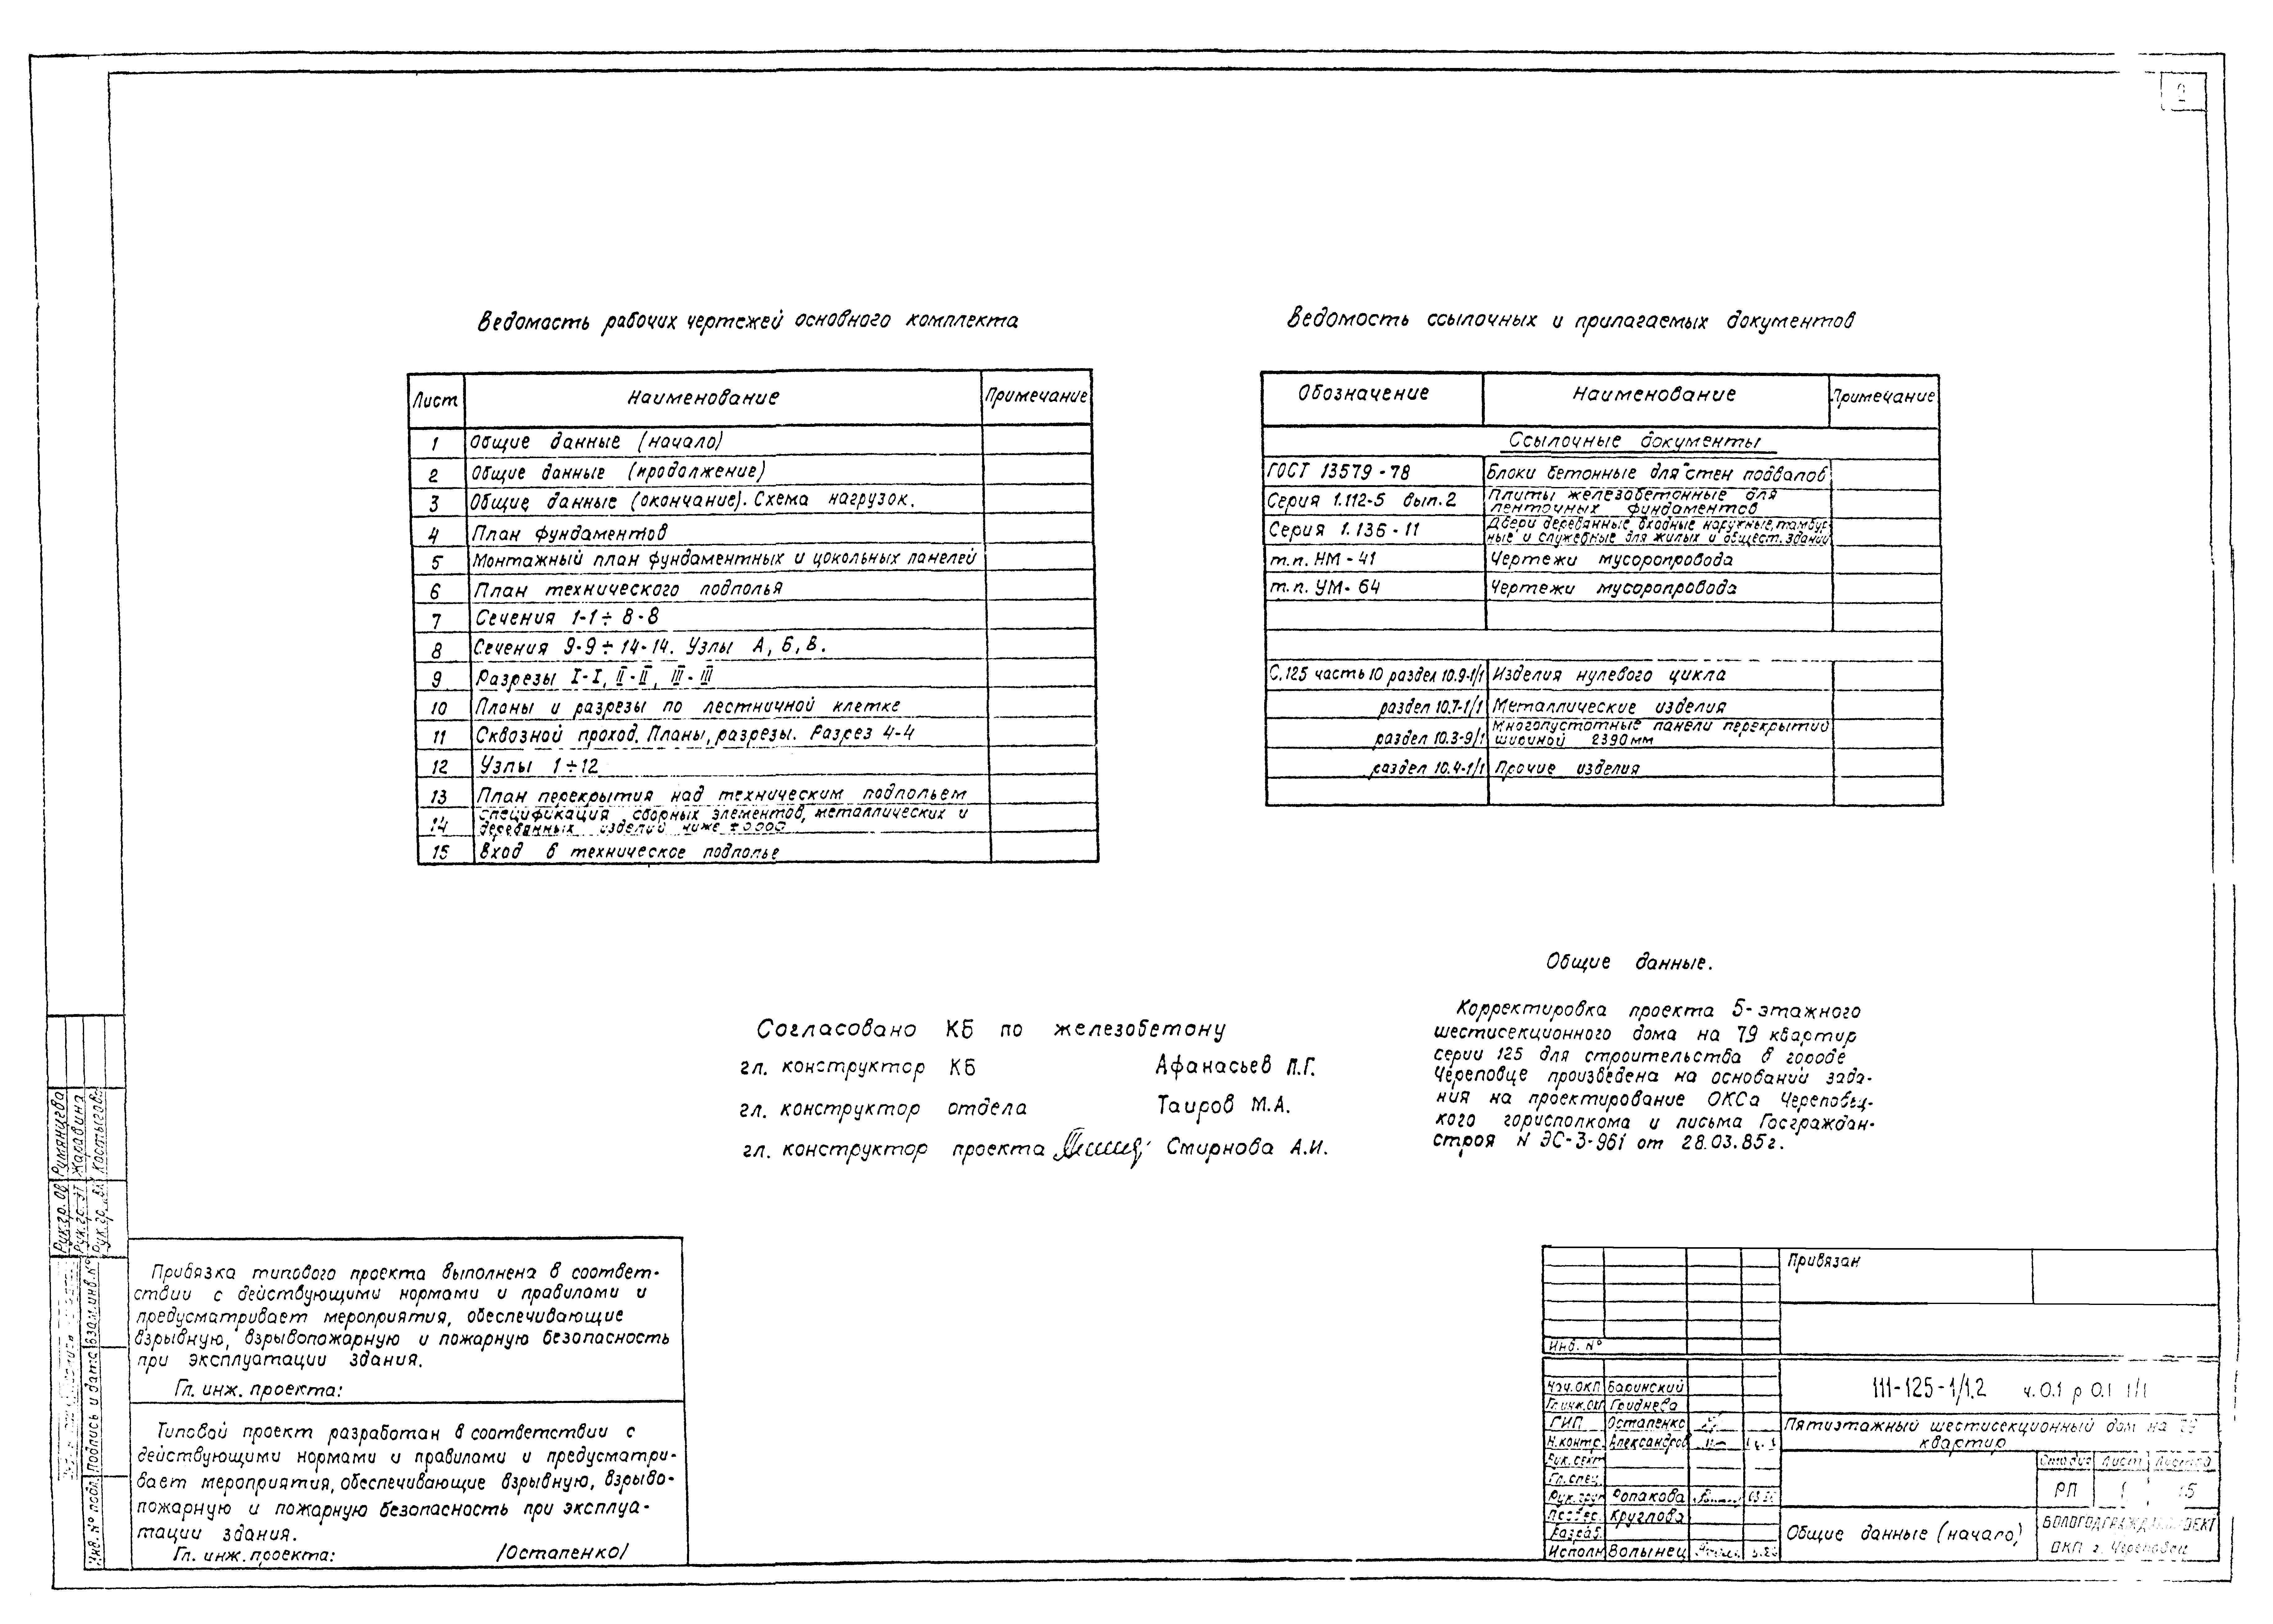 2
Ведомость рабочих чертежей основного комплекта
Лист Наименование Примечание
1 Общие данные (начало)
2 Общие данные (продолжение)
3 Общие данные (окончание). Схема нагрузок.
4 План фундаментов
5 Монтажный план фундаментных и цокольных панелей
6 План технического подполья
7 Сечения 1-1÷8-8
8 Сечения 9-9÷14-14. Узлы А, Б, В.
9 Разрезы I-I, II-II, III-III
10 Планы и разрезы по лестничной клетке
11 Сквозной проход. Планы, разрезы. Разрез 4-4
12 Узлы 1÷12
13 План перекрытия над техническим подпольем
14 Спецификация сборных элементов, металлических и
деревянных изделий ниже ±0.000
15 Вход в техническое подполье
Ведомость ссылочных и прилагаемых документов
Обозначение Наименование Примечание
Ссылочные документы
ГОСТ 13579-78 Блоки бетонные для стен подвалов
Серия 1.112-5 вып.2 Плиты железобетонные для
ленточных фундаментов
Серия 1.136-11 Двери деревянные входные наружные, тамбур-
ные и служебные для жилых и общест. зданий
т.п. НМ-41 Чертежи мусоропровода
т.п. УМ-64 Чертежи мусоропровода
С.125 часть 10 раздел 10.9-1/1 Изделия нулевого цикла
раздел 10.7-1/1 Металлические изделия
раздел 10.3-9/1 Многопустотные панели перекрытий
шириной 2390мм
раздел 10.4-1/1 Прочие изделия
Согласовано КБ по железобетону
гл. конструктор КБ Афанасьев П.Г.
гл. конструктор отдела Таиров М.А.
гл. конструктор проекта Смирнова А.И.
Общие данные.
Корректировка проекта 5-этажного
шестисекционного дома на 79 квартир
серии 125 для строительства в городе
Череповце произведена на основании зада-
ния на проектирование ОКСа Черепове­ц-
кого горисполкома и письма Госграждан-
строя N ЭС-3-961 от 28.03.85г.
Рук.гр. ОВ Румянцева
Рук.гр. ЭТ Жаравина
Рук.гр. ВК Костыгова
Инв.№ подл. Подпись и дата Взам.инв.№
Привязка типового проекта выполнена в соответ-
ствии с действующими нормами и правилами и
предусматривает мероприятия, обеспечивающие
взрывную, взрывопожарную и пожарную безопасность
при эксплуатации здания.
Гл. инж. проекта:
Типовой проект разработан в соответствии с
действующими нормами и правилами и предусматри-
вает мероприятия, обеспечивающие взрывную, взрыво-
пожарную и пожарную безопасность при эксплуа-
тации здания.
Гл. инж. проекта: /Остапенко/
Привязан
Инв. №
Нач.ОКП Баринский
Гл.инж.ОКП Гриднева
ГИП Остапенко
Н.контр. Александров
Рук.сект
Гл.спец.
Рук.груп
Провер. Круглова
Разраб.
Исполн Волынец
111-125-1/1.2 ч.0.1 р 0.1-1/1
Пятиэтажный шестисекционный дом на 79
квартир
Стадия Лист Листов
РП 1 15
Общие данные (начало)
ВОЛОГОДГРАЖДАНПРОЕКТ
ОКП г. Череповец